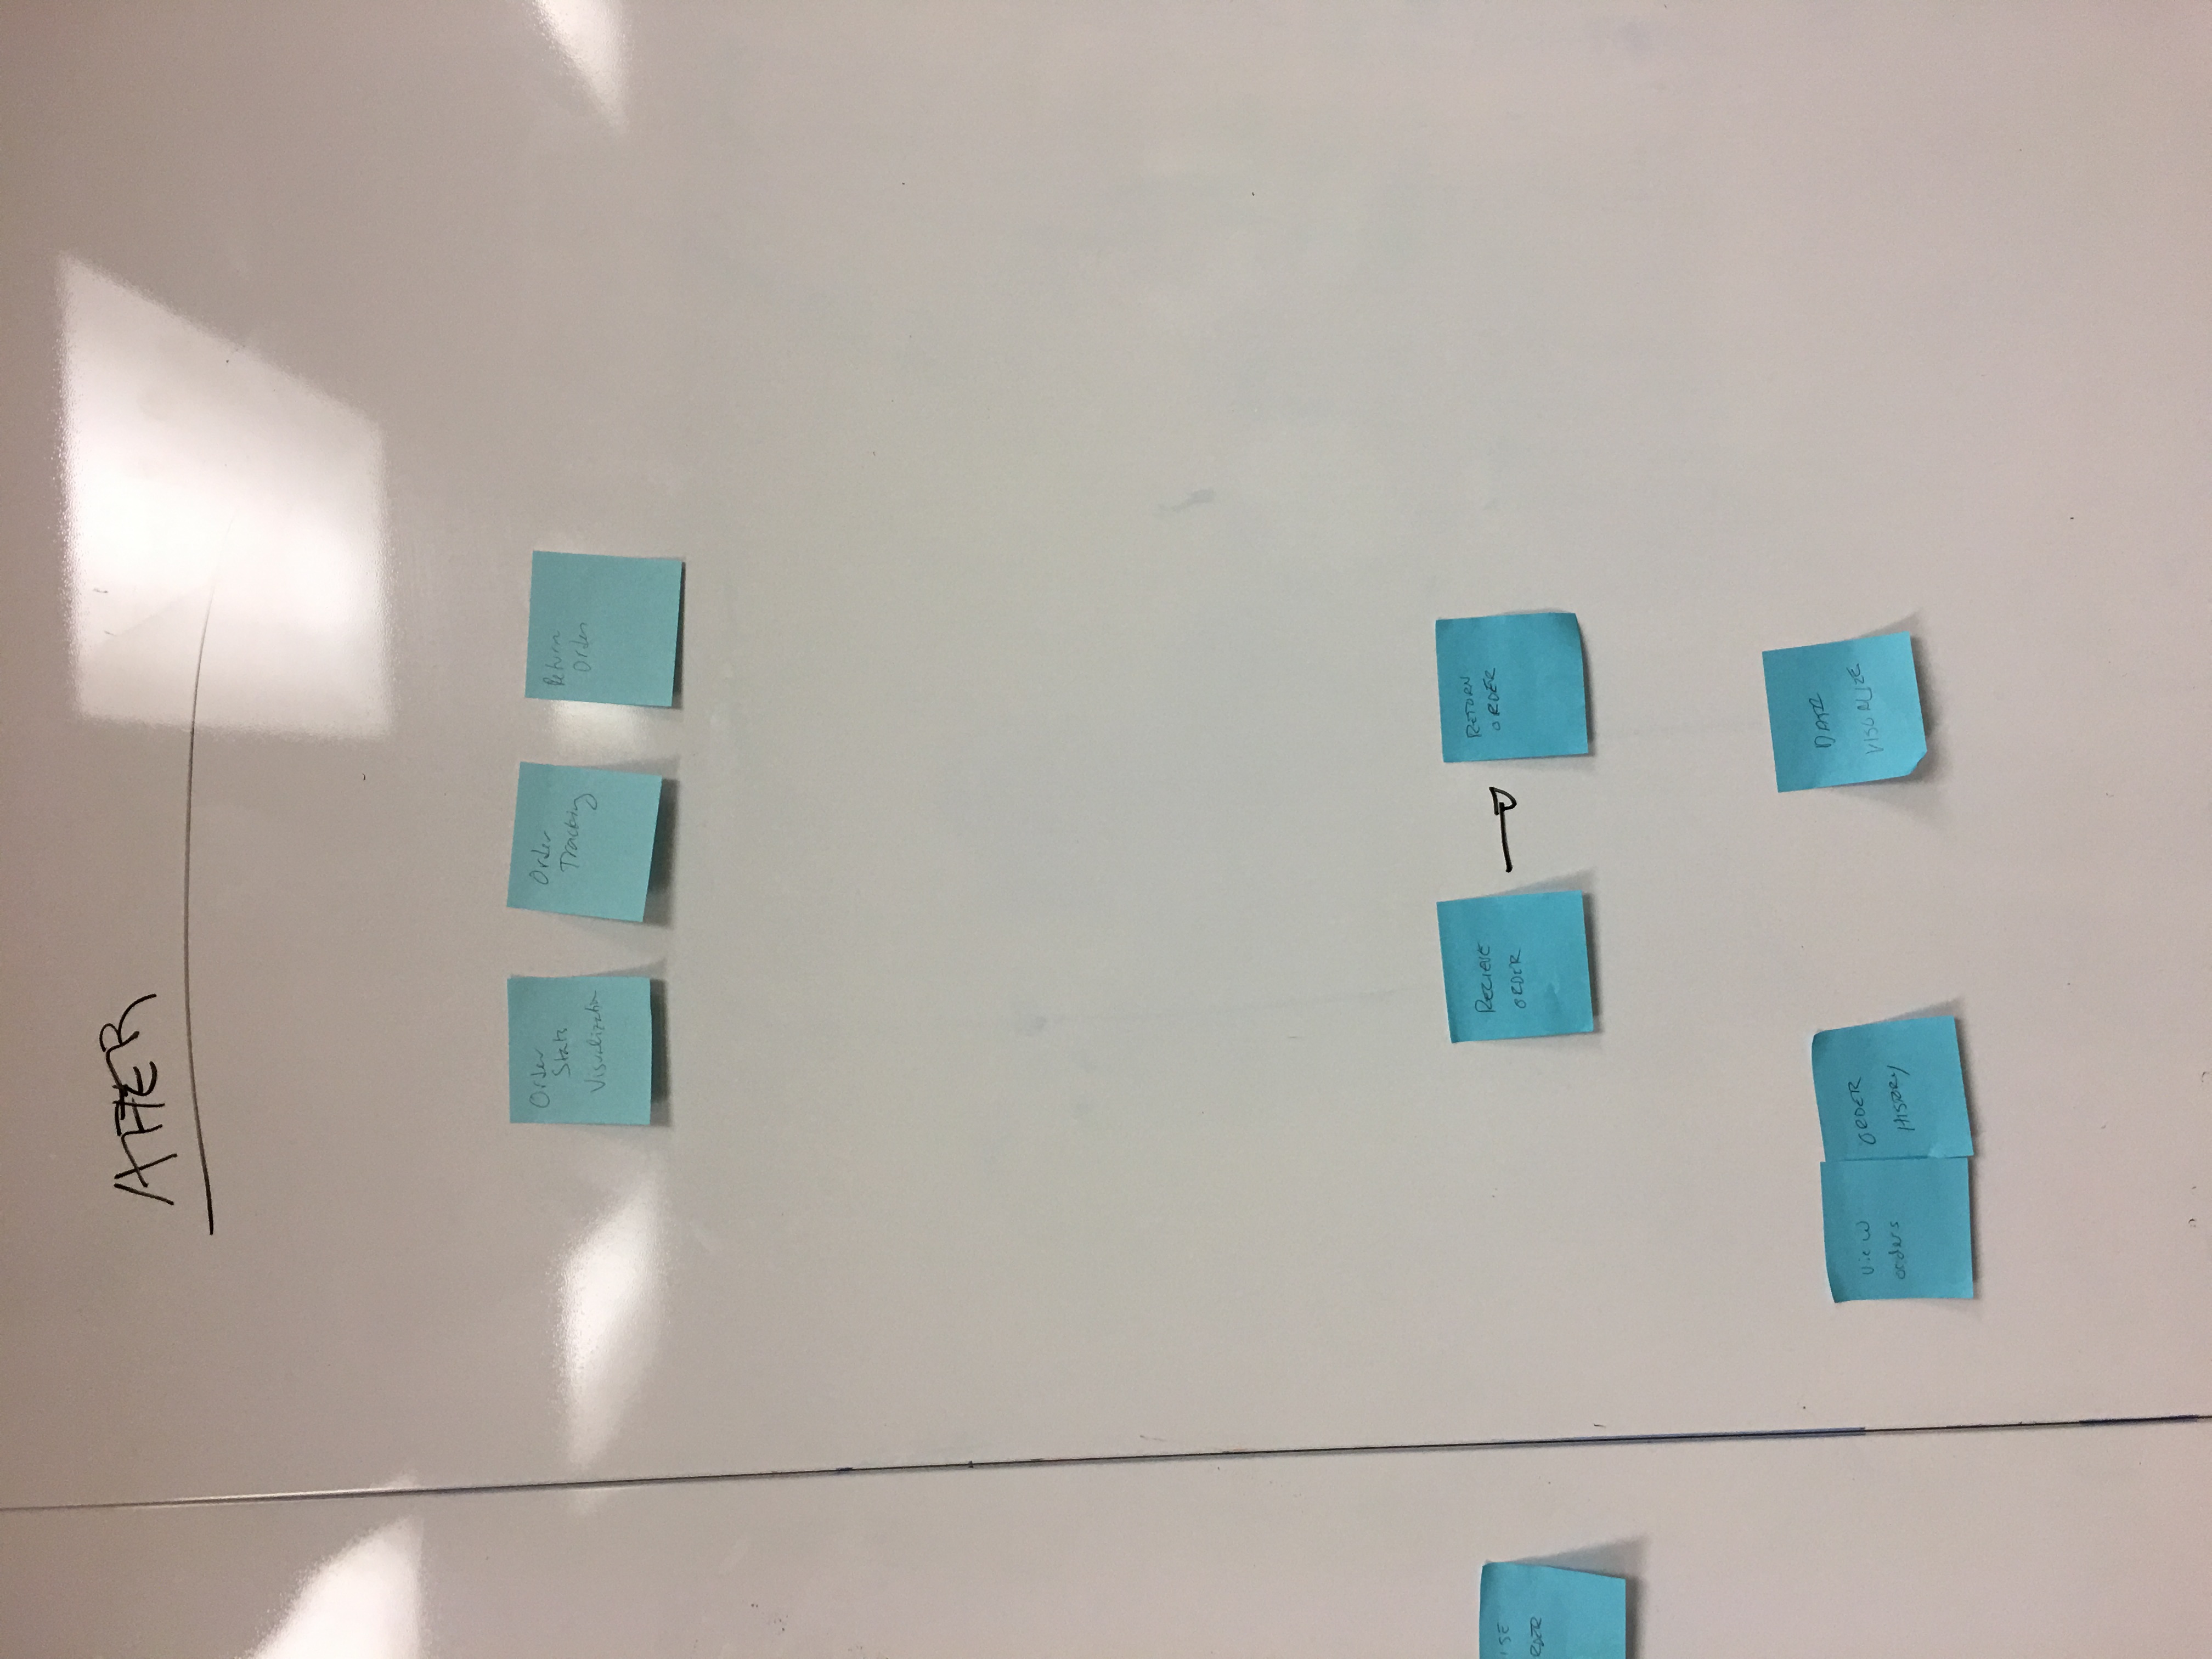 AFTER
Order
Stats
Visualization
Order
Tracking
Return
Order
RECIEVE
ORDER
RETURN
ORDER
ISE
RDER
View
orders
ORDER
HISTORY
DATA
VISUALIZE